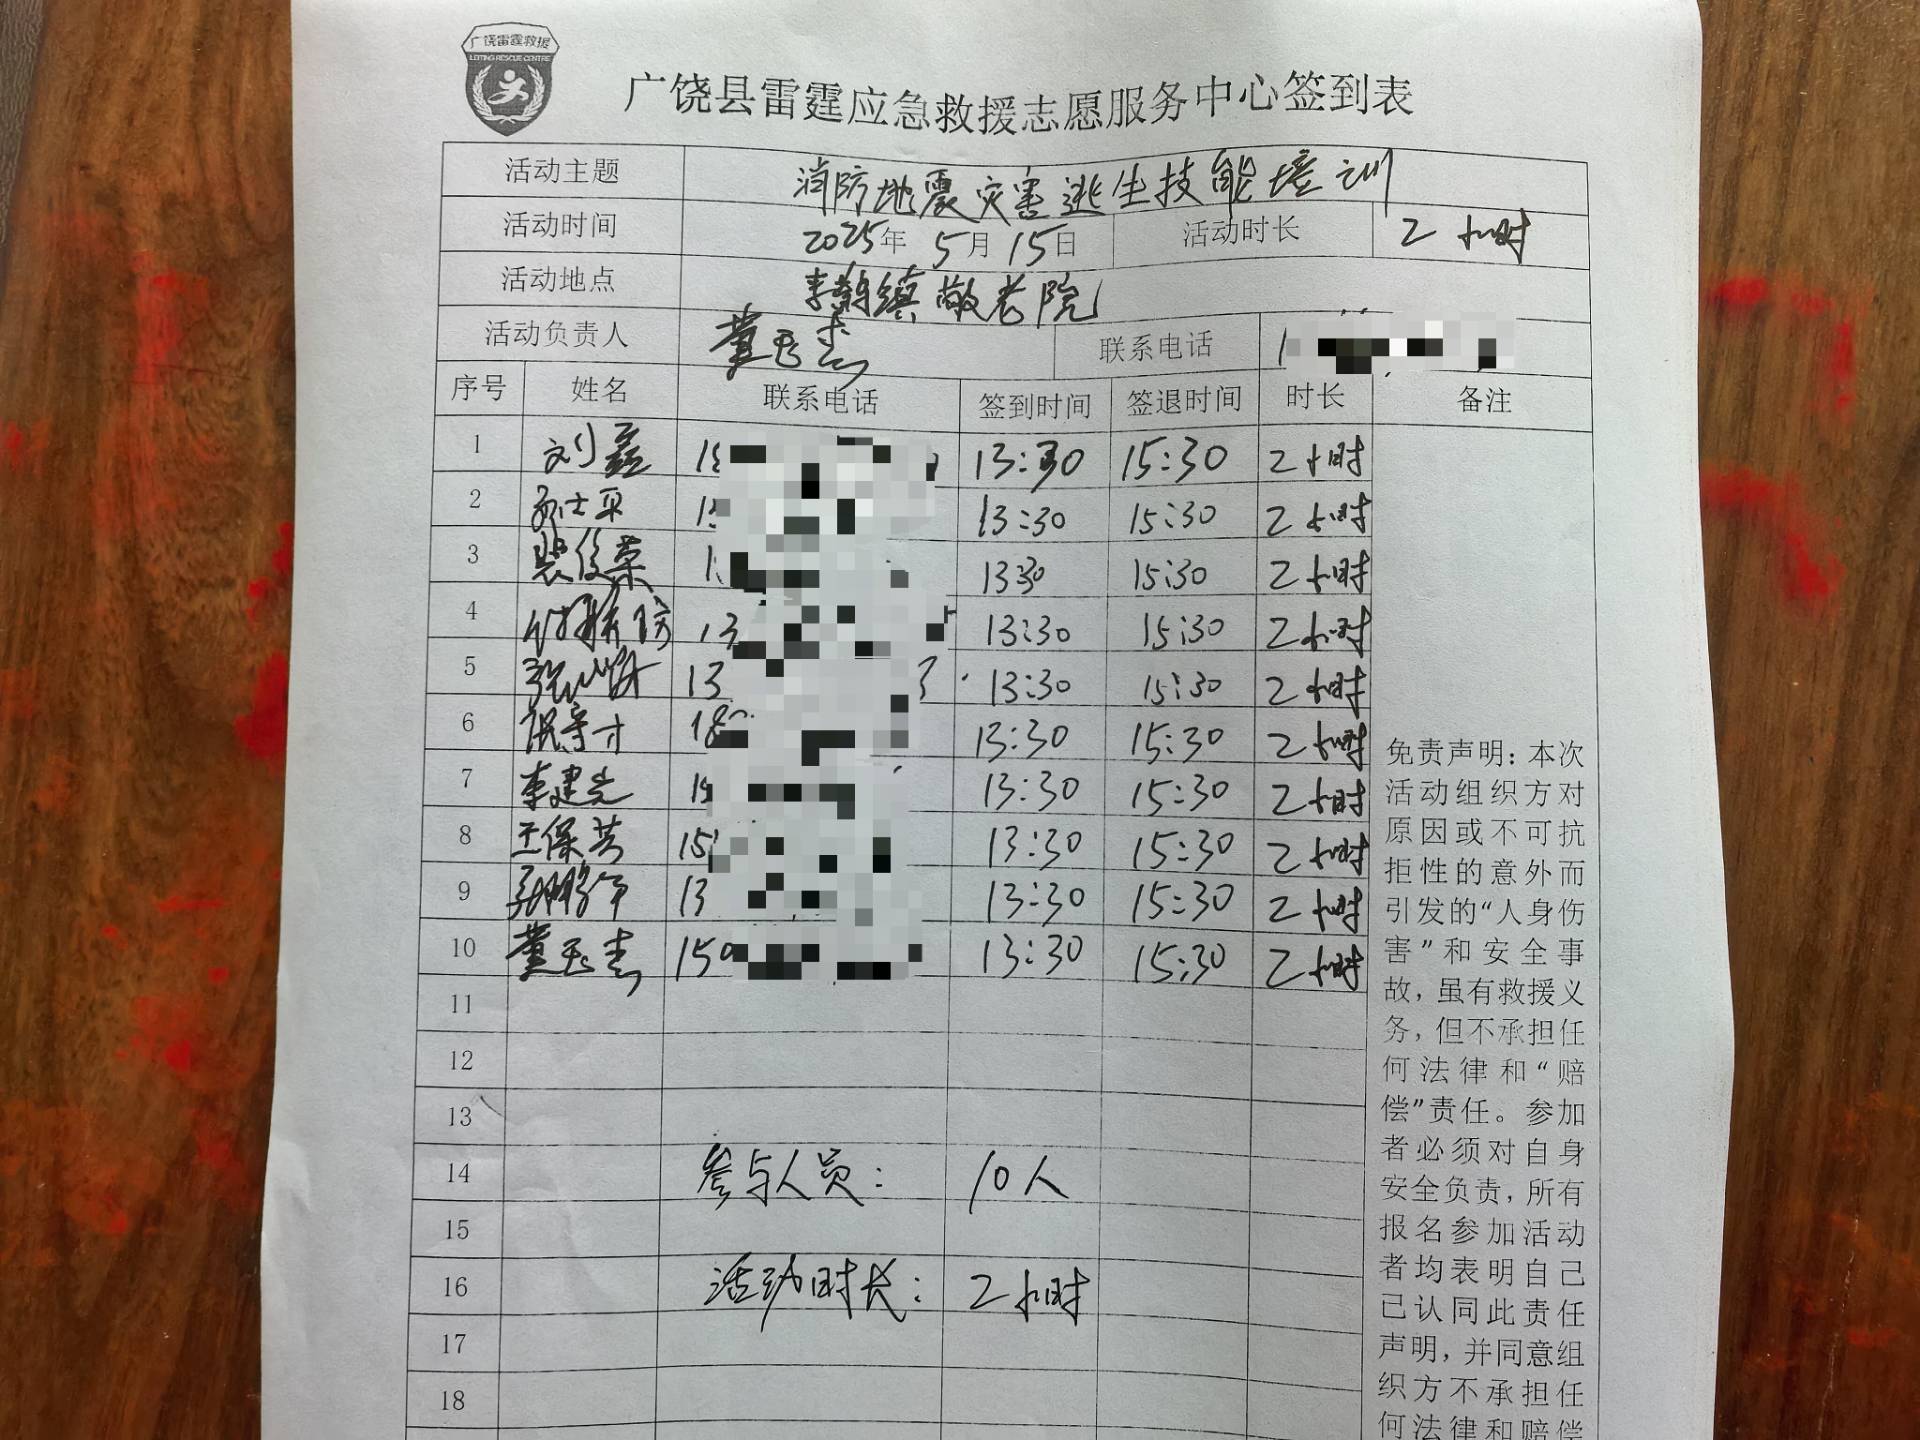 广饶雷霆救援
LEITING RESCUE CENTRE
广饶县雷霆应急救援志愿服务中心签到表
活动主题 消防地震灾害逃生技能培训
活动时间 2025年 5月 15日 活动时长 2小时
活动地点 李鹊镇敬老院
活动负责人 董玉杰 联系电话 1
序号 姓名 联系电话 签到时间 签退时间 时长 备注
1 刘磊 18 13:30 15:30 2小时
2 士平 15 13:30 15:30 2小时
3 裴俊荣 1 13:30 15:30 2小时
4 13 13:30 15:30 2小时
5 张 13 13:30 15:30 2小时
6 守才 18 13:30 15:30 2小时
7 李建光 13:30 15:30 2小时
8 王保芳 15 13:30 15:30 2小时
9 13 13:30 15:30 2小时
10 董玉杰 150 13:30 15:30 2小时
11
12
13
14 参与人员: 10人
15
16 活动时长: 2小时
17
18
免责声明:本次
活动组织方对
原因或不可抗
拒性的意外而
引发的“人身伤
害”和安全事
故,虽有救援义
务,但不承担任
何法律和“赔
偿”责任。参加
者必须对自身
安全负责,所有
报名参加活动
者均表明自己
已认同此责任
声明,并同意组
织方不承担任
何法律和赔偿